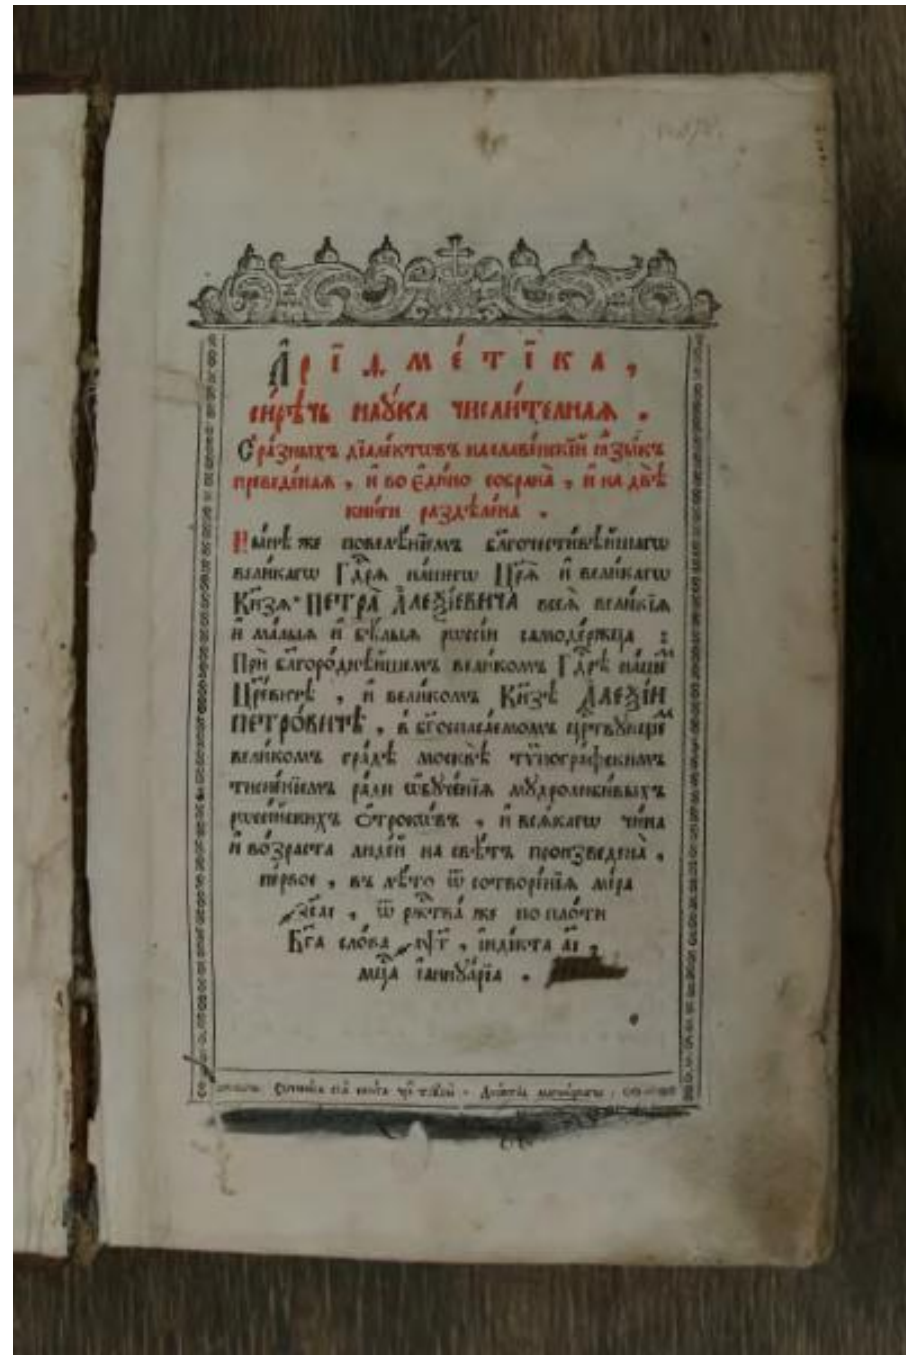 А҆рїѳме́тїка,
сирѣ́чь наꙋ́ка числи́телнаѧ.
С̾ ра́зныхъ дїале́ктѡвъ на славе́нскїй ѧ҆зы́къ
преведе́наѧ, и҆ во є҆ди́но собрана̀, и҆ на двѣ̀
кни́ги раздѣле́на.
Ны́нѣ же повелѣ́нїемъ бл҃гочести́вѣйшагѡ
вели́кагѡ Гдⷭ҇рѧ на́шегѡ Цр҃ѧ̀ и҆ вели́кагѡ
Кн҃зѧ ПЕТРА̀ А҆ЛЕѮІ́ЕВИЧА всеѧ̀ вели́кїѧ
и҆ ма́лыѧ и҆ бѣ́лыѧ рѡссі́и самоде́ржца :
Прѝ бл҃горо́днѣйшемъ вели́комъ Гдⷭ҇рѣ на́шеⷨ
Цр҃е́вичѣ, и҆ вели́комъ Кн҃зѣ А҆ЛЕѮІ́И
ПЕТРО́ВИЧѢ, в̾ бг҃оспаса́емомъ црⷭ҇твꙋющеⷨ
вели́комъ гра́дѣ москвѣ̀ тѷпогра́фскимъ
тисне́нїемъ ра́ди ѡ҆бꙋче́нїѧ мꙋдролюби́выхъ
рѡссі́йскихъ ѻ҆трокѡ́въ, и҆ всѧ́кагѡ чи́на
и҆ во́зраста люде́й на свѣ́тъ произведена̀,
пе́рвое, въ лѣ́то ѿ сотворе́нїѧ мі́ра
҂зса҃і, ѿ ржⷭ҇тва́ же по пло́ти
Бг҃а сло́ва ҂аѱ҃г, і҆нді́кта а҃і,
мцⷭ҇а і҆аннꙋа́рїа.
Сочини́сѧ сїѧ̀ кни́га чрⷥе̾ трꙋды̀ Лео́нтїа магни́цкагѡ